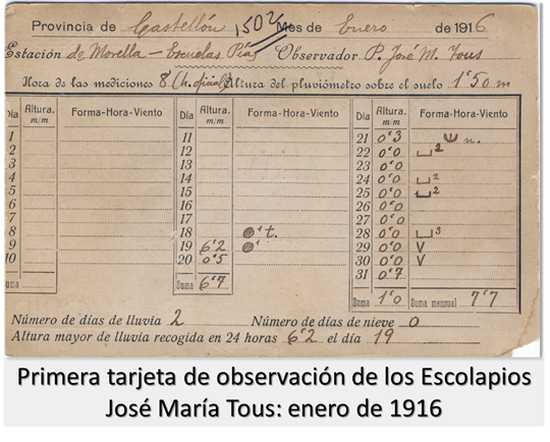 Provincia de Castellón 1502 Mes de Enero de 1916
Estación de Morella – Escuelas Pías Observador P. José M. Tous
Hora de las mediciones 8 (h. oficial) Altura del pluviómetro sobre el suelo 1'50 m
Día Altura. m/m Forma-Hora-Viento Día Altura. m/m Forma-Hora-Viento Día Altura. m/m Forma-Hora-Viento
1 11 21 0'3 n.
2 12 22 0'0 2
3 13 23 0'0
4 14 24 0'0 2
5 15 25 0'0 2
6 16 26 0'0
7 17 27 0'0
8 18 t. 28 0'0 3
9 19 6'2 29 0'0 V
10 20 0'5 30 0'0 V
31 0'7
Suma Suma 6'7 Suma 1'0 Suma mensual 7'7
Número de días de lluvia 2 Número de días de nieve 0
Altura mayor de lluvia recogida en 24 horas 6'2 el día 19
Primera tarjeta de observación de los Escolapios
José María Tous: enero de 1916